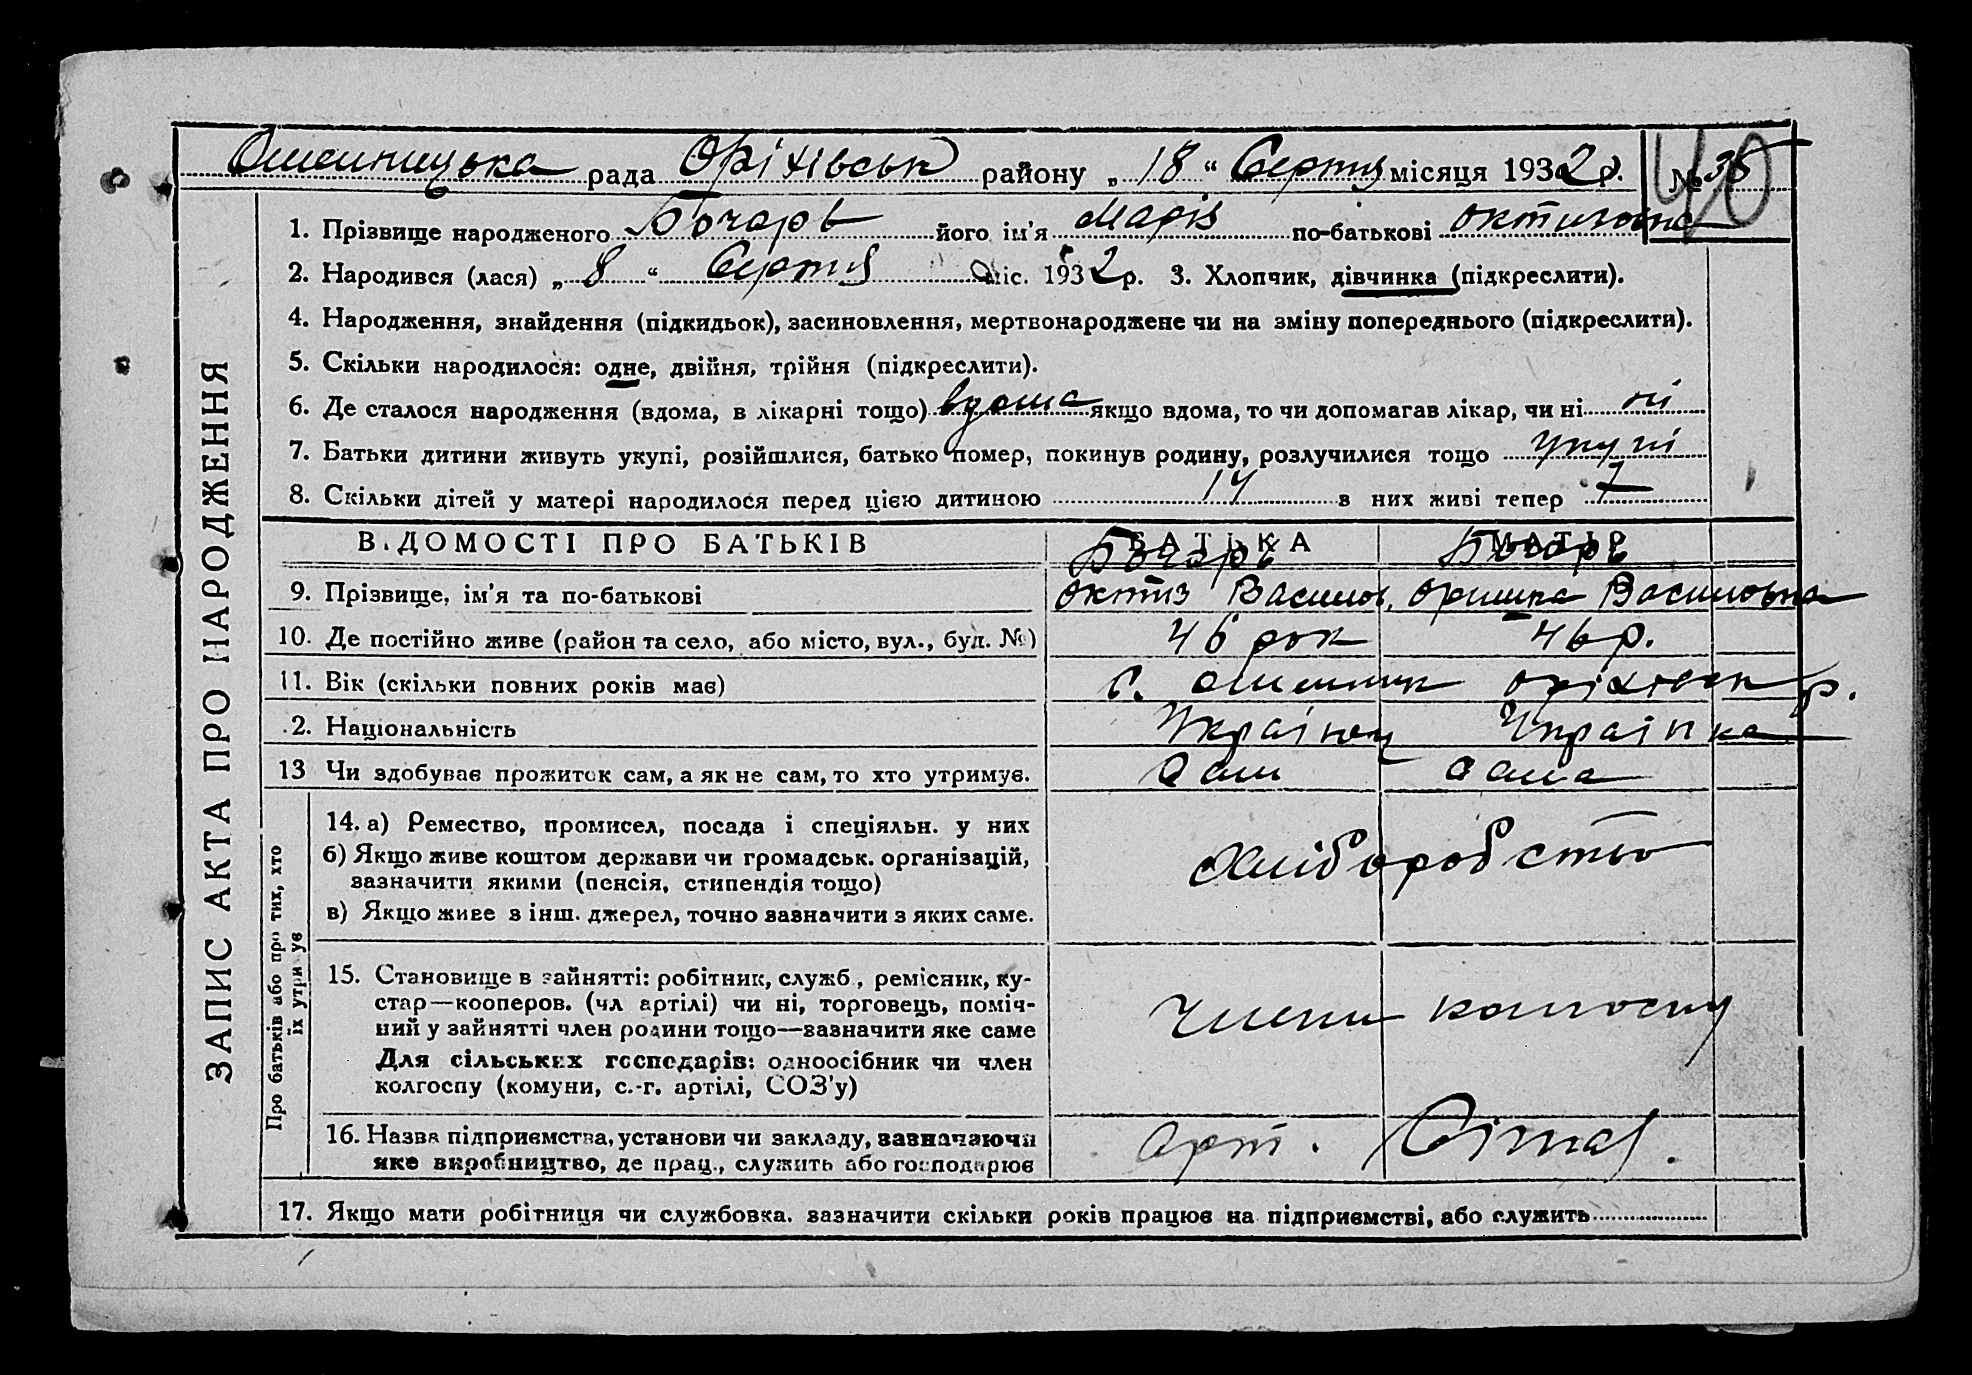 рада Оріхівськ району „ 18 “ Серпня місяця 1932 р. № 38
40
1. Прізвище народженого Бочарь його ім'я Марія по-батькові
2. Народився (лася) „ 8 “ Серпня міс. 1932 р. 3. Хлопчик, дівчинка (підкреслити).
4. Народження, знайдення (підкидьок), засиновлення, мертвонароджене чи на зміну попереднього (підкреслити).
5. Скільки народилося: одне, двійня, трійня (підкреслити).
6. Де сталося народження (вдома, в лікарні тощо) вдома якщо вдома, то чи допомагав лікар, чи ні ні
7. Батьки дитини живуть укупі, розійшлися, батько помер, покинув родину, розлучилися тощо укупі
8. Скільки дітей у матері народилося перед цією дитиною 14 з них живі тепер 7
ВІДОМОСТІ ПРО БАТЬКІВ БАТЬКА МАТІР
Бочарь Бочарь
9. Прізвище, ім'я та по-батькові Василов. Оришка Василовна
10. Де постійно живе (район та село, або місто, вул., буд. №) 46 рок 46 р.
11. Вік (скільки повних років має) с. Оріхівськ р.
12. Національність Українец Українка
13 Чи здобуває прожиток сам, а як не сам, то хто утримує. Сам Сама
14. а) Ремество, промисел, посада і спеціяльн. у них
б) Якщо живе коштом держави чи громадськ. організацій,
зазначити якими (пенсія, стипендія тощо)
хліборобство
в) Якщо живе з інш. джерел, точно зазначити з яких саме.
15. Становище в зайнятті: робітник, служб., ремісник, ку-
стар—кооперов. (чл артілі) чи ні, торговець, поміч-
ний у зайнятті член родини тощо—зазначити яке саме
Члени колгоспу
Для сільських господарів: одноосібник чи член
колгоспу (комуни, с.-г. артілі, СОЗ'у)
16. Назва підприємства, установи чи закладу, зазначаючи
яке виробництво, де прац., служить або господарює
Арт.
17. Якщо мати робітниця чи службовка, зазначити скільки років працює на підприємстві, або служить
ЗАПИС АКТА ПРО НАРОДЖЕННЯ
Про батьків або про тих, хто
їх утримує